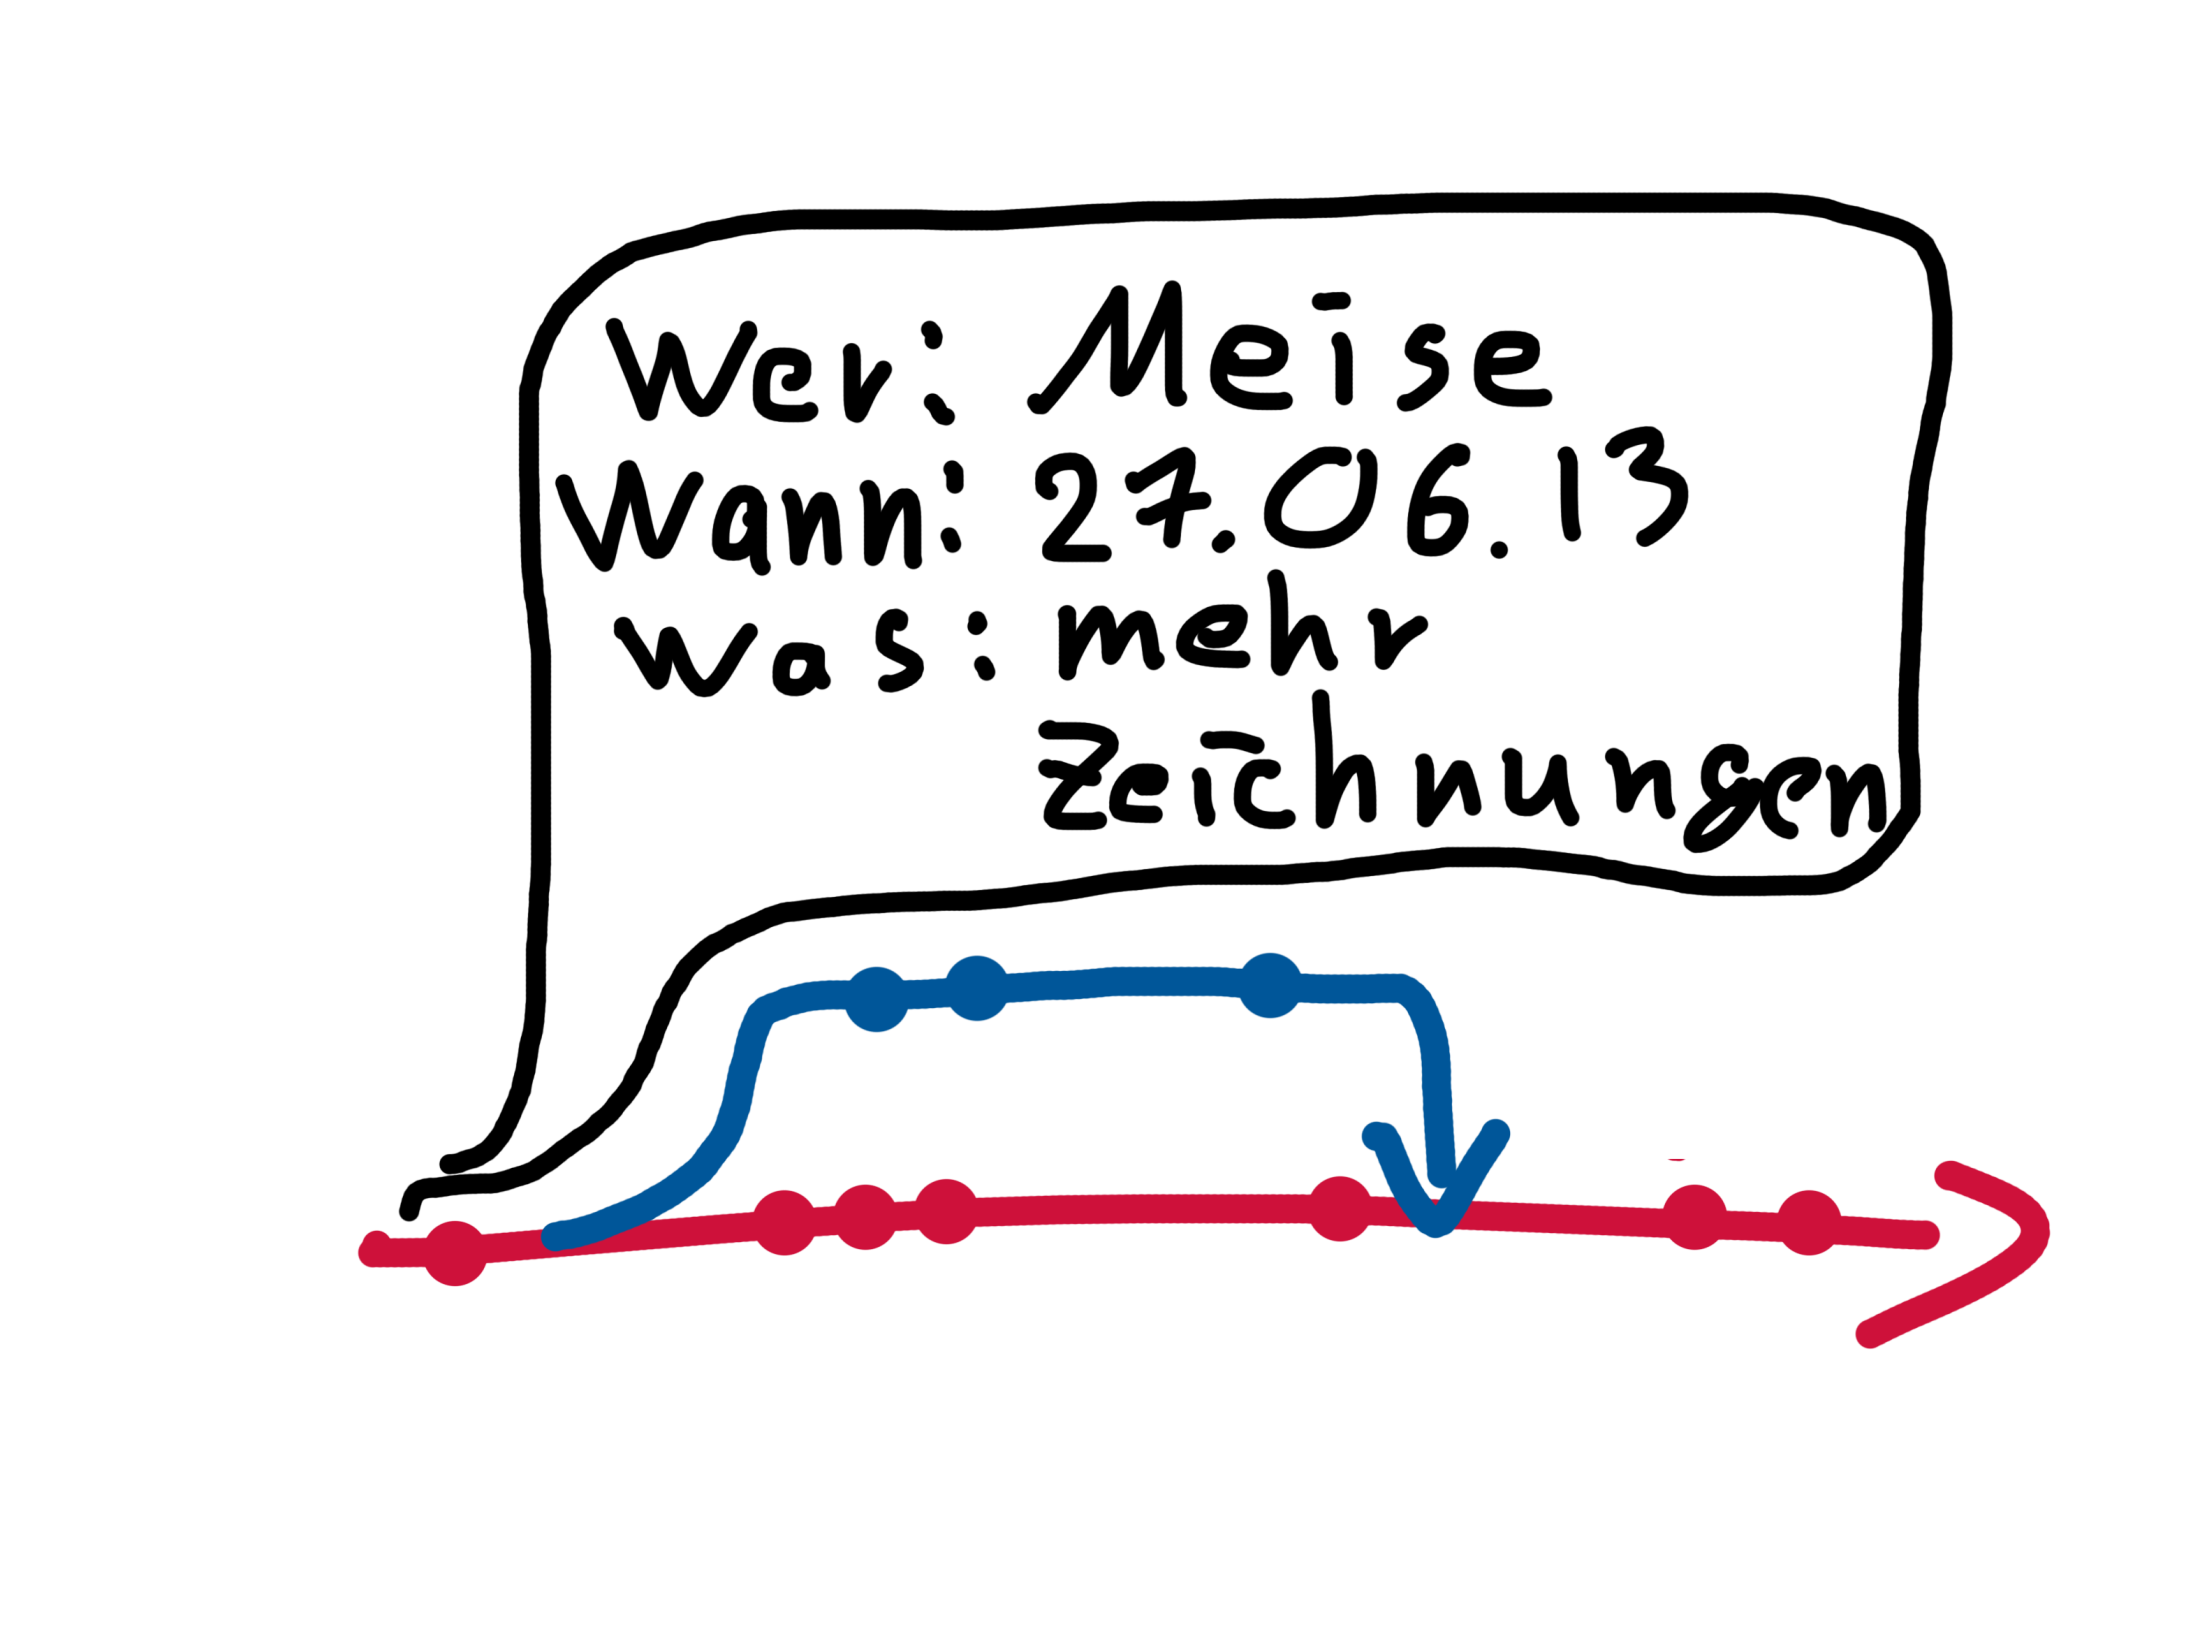 Wer: Meise
Wann: 27.06.13
Was: mehr
Zeichnungen